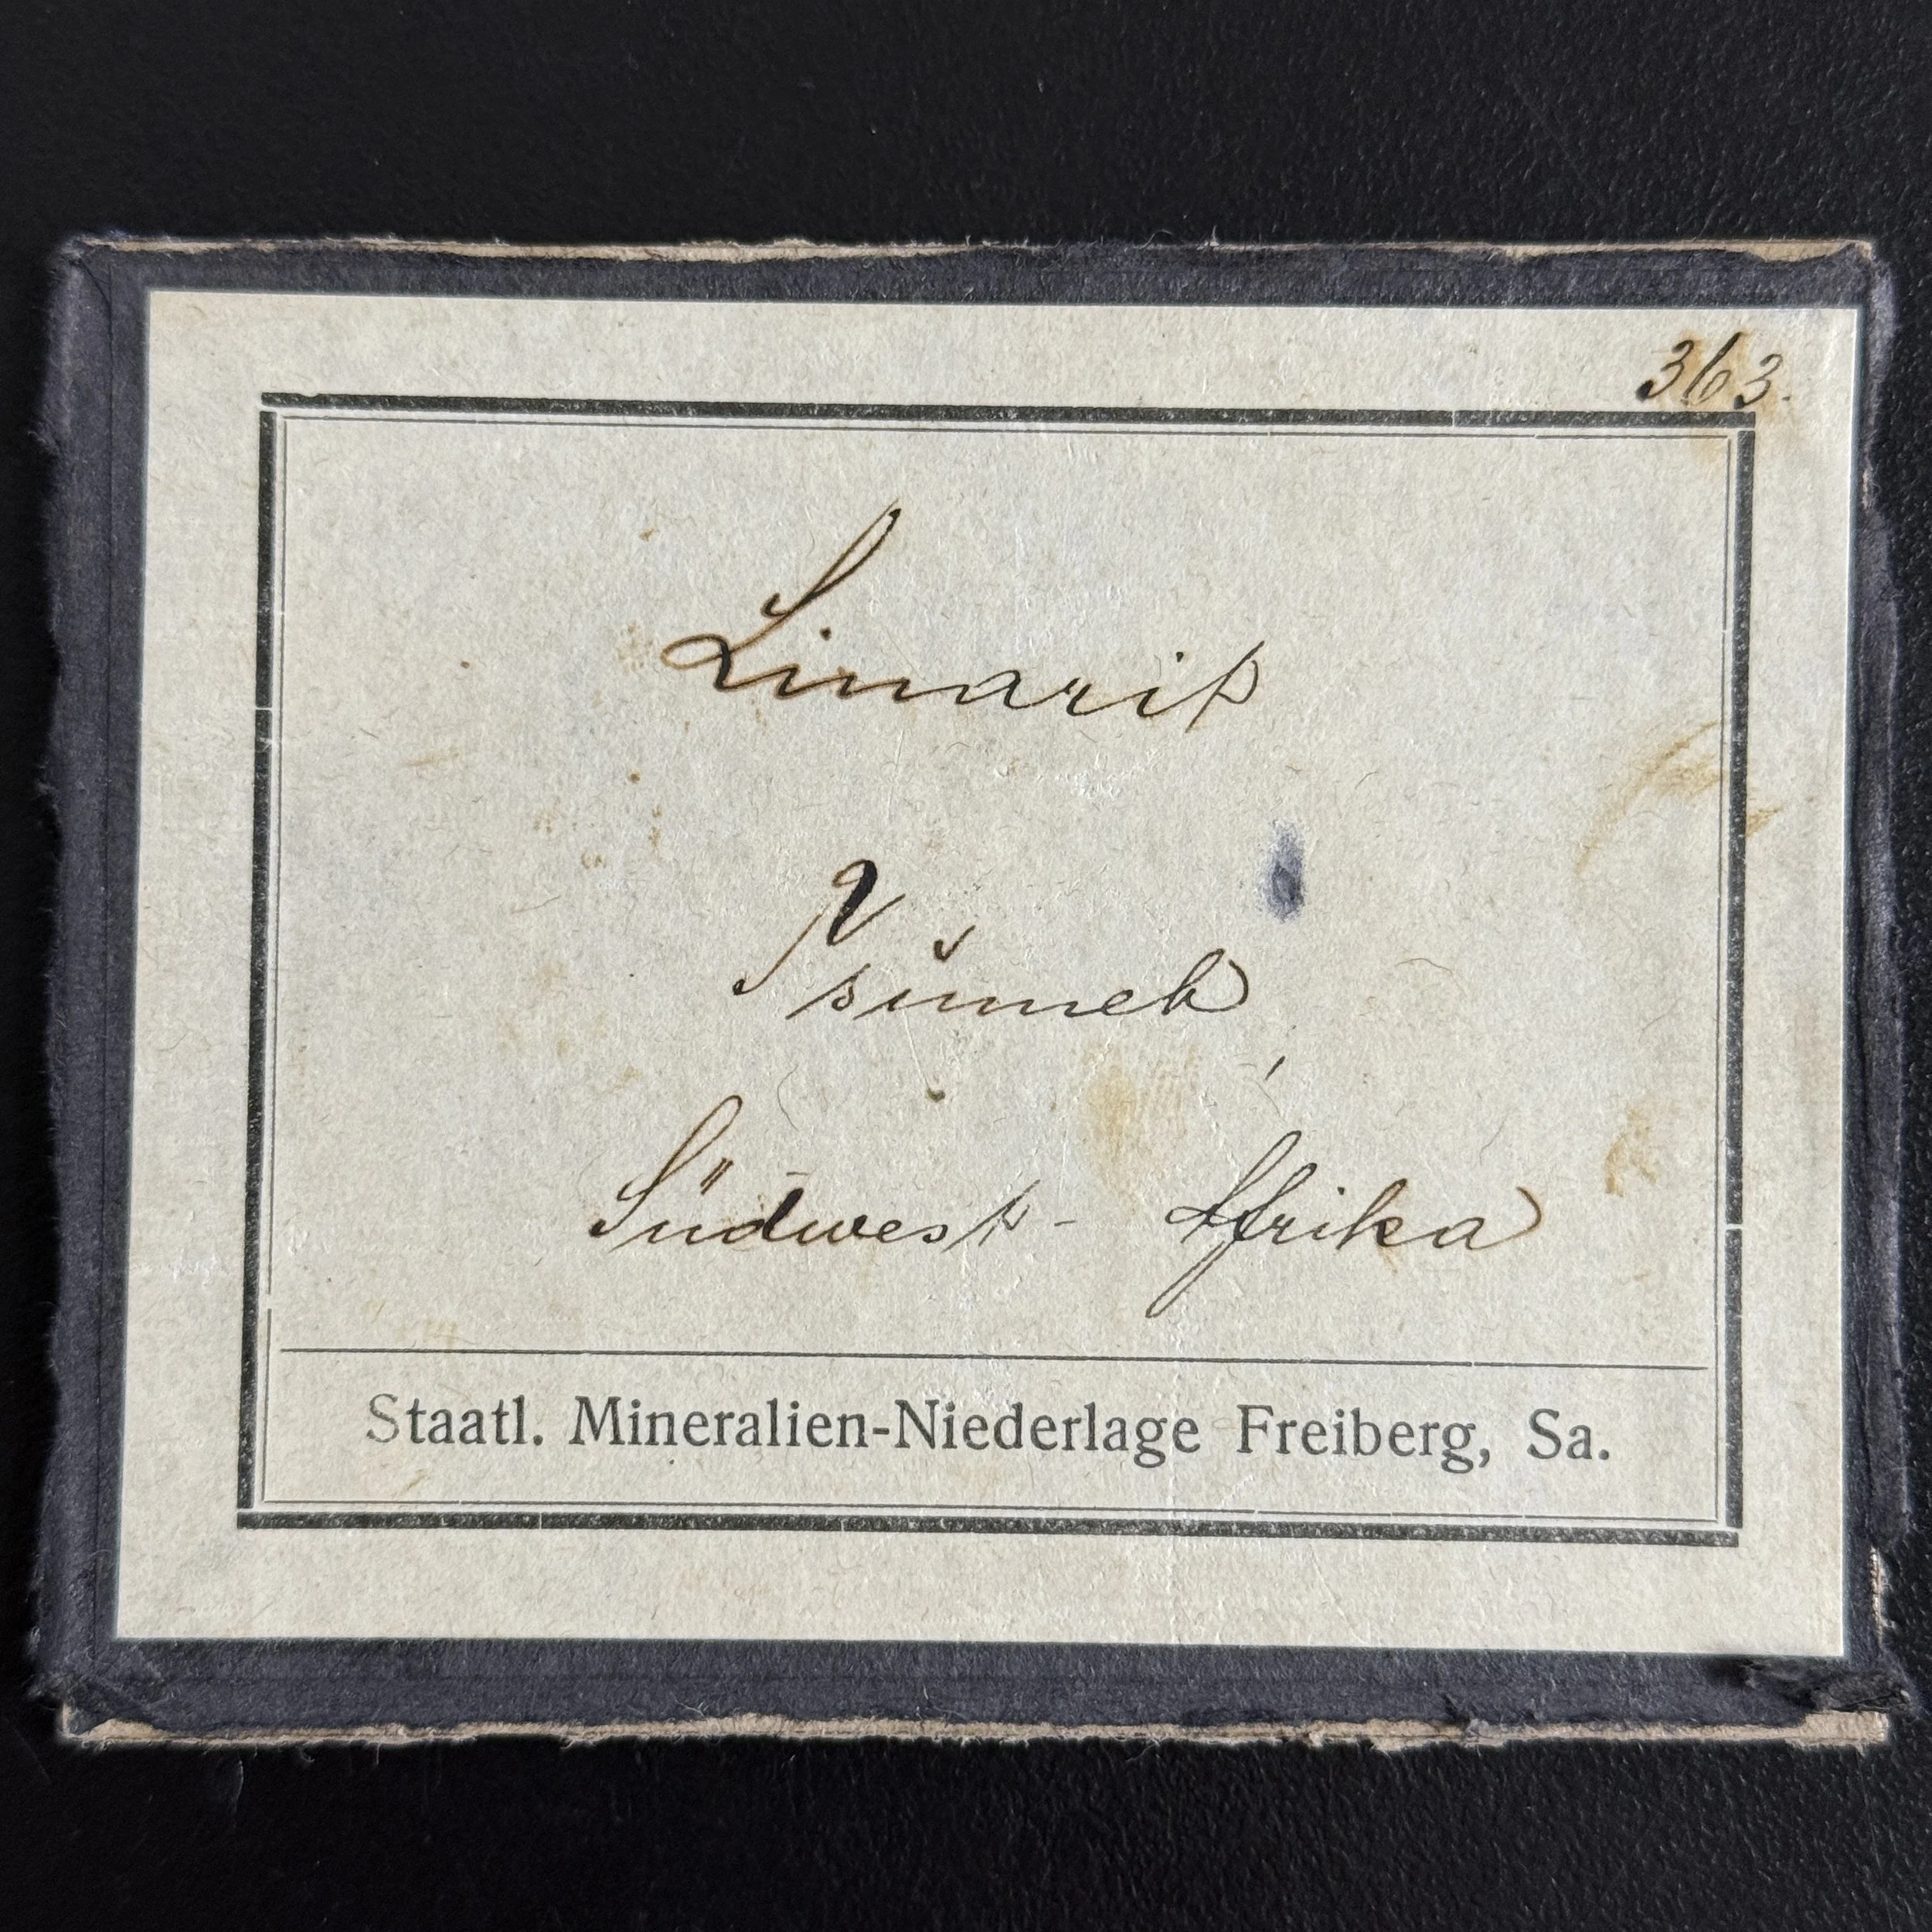 363.
Linarit
Tsumeb
Südwest-Afrika
Staatl. Mineralien-Niederlage Freiberg, Sa.